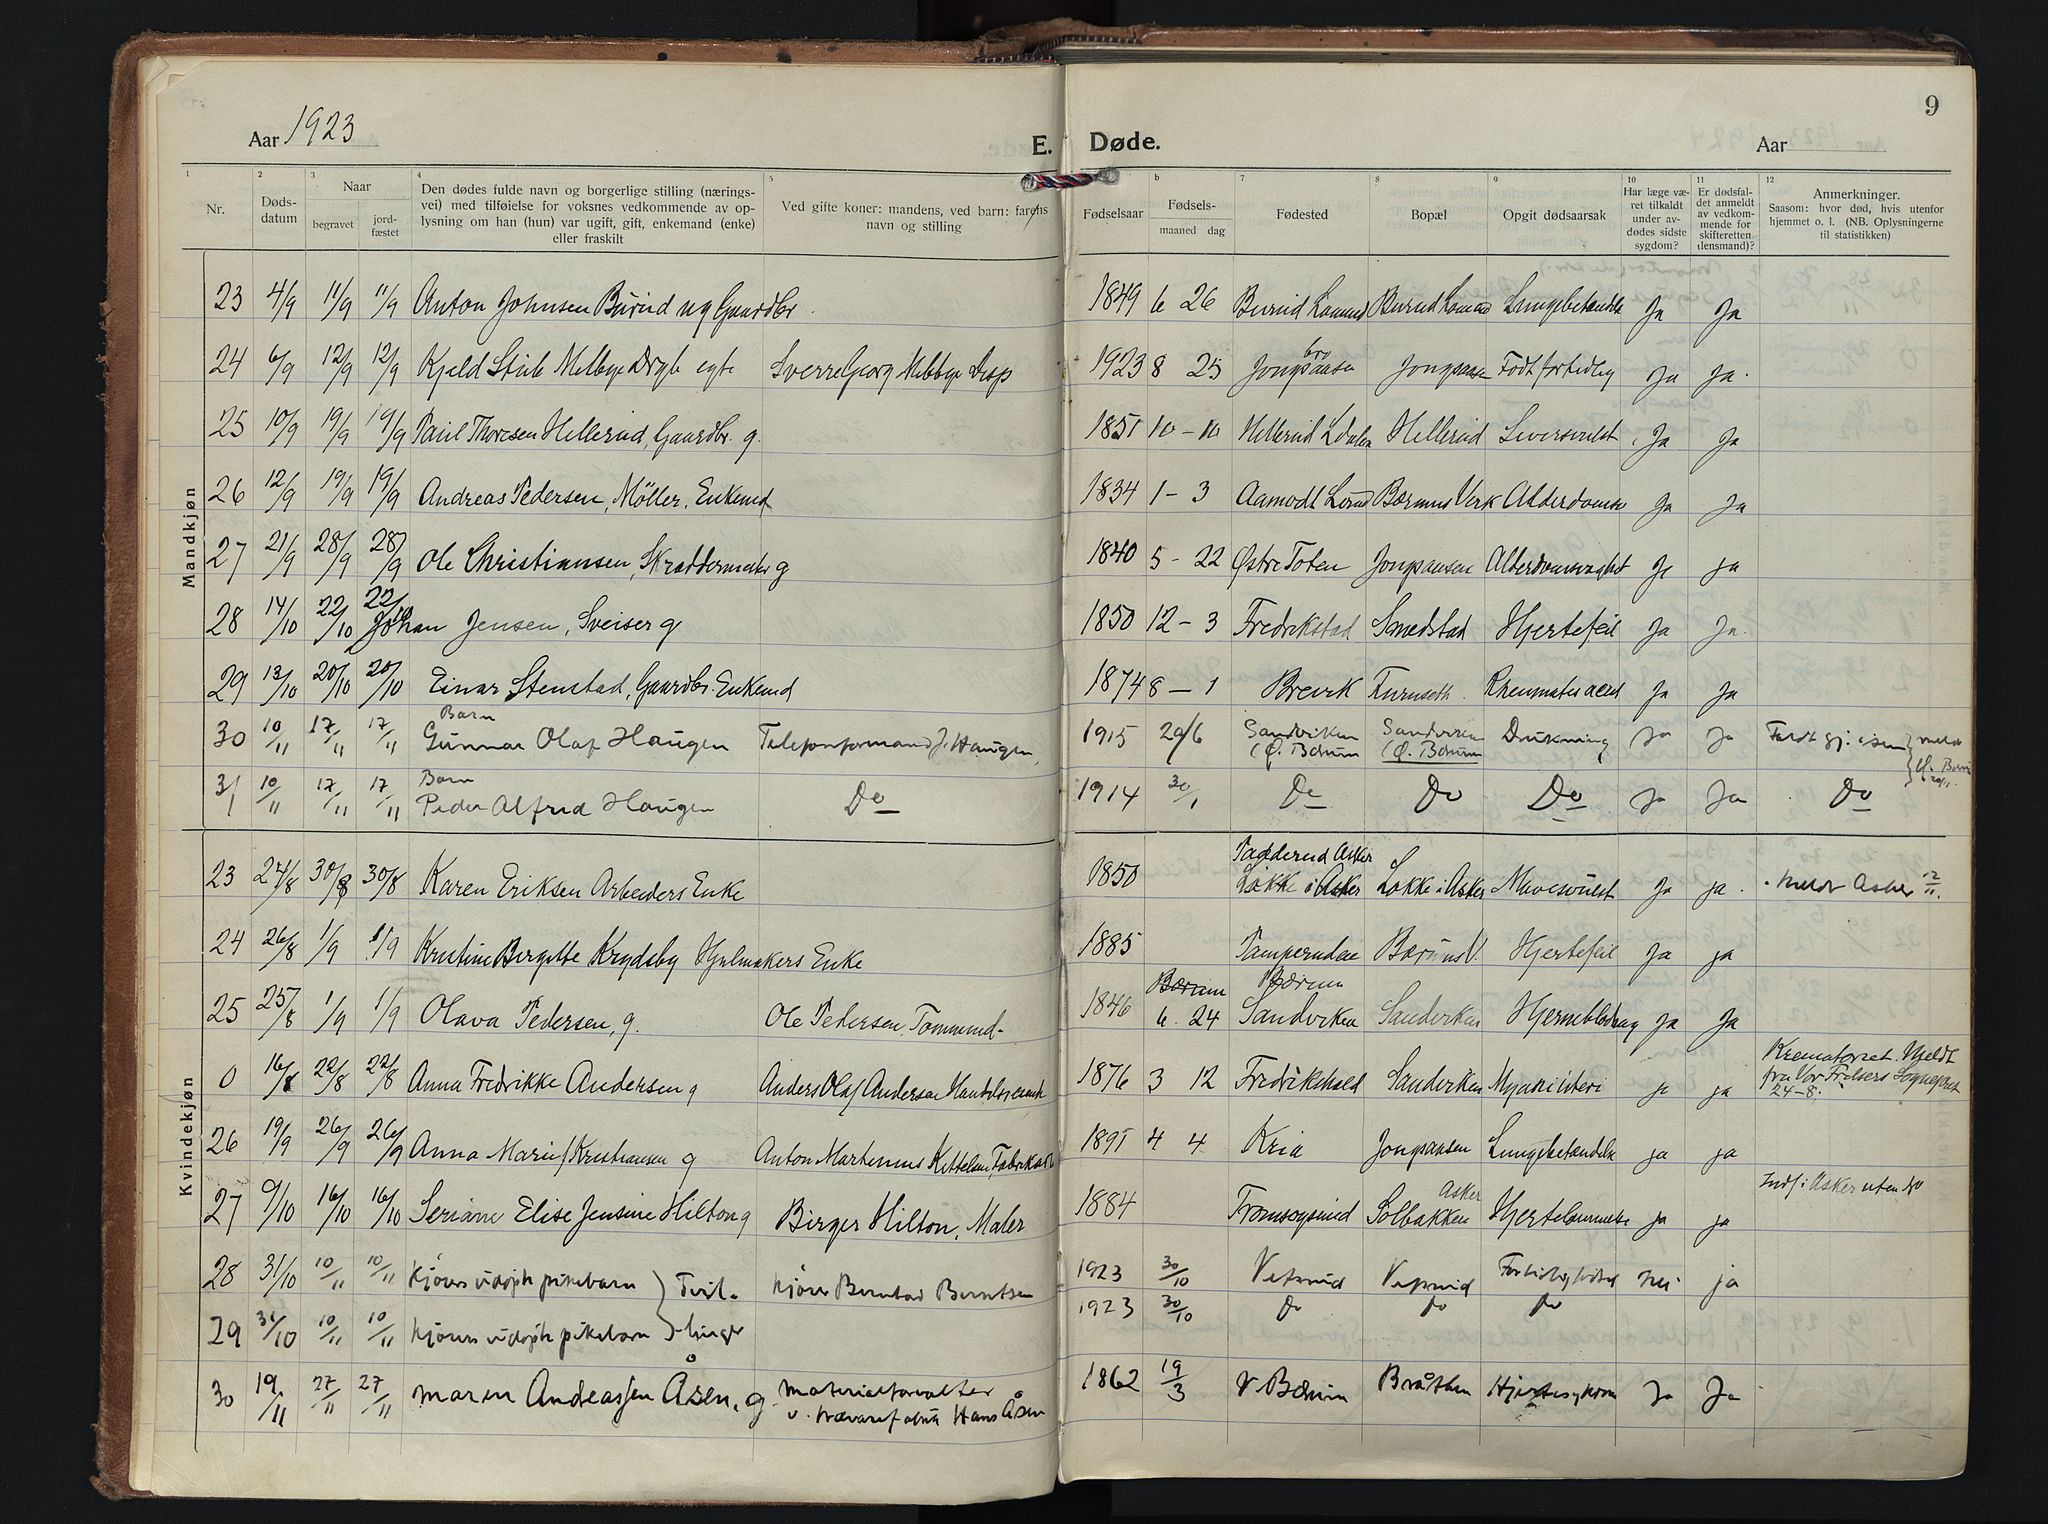 9
Aar 1923
E. Døde.
Aar
1 2 3 4 5 b 7 8 9 10 11 12
Nr.
Døds-
datum
Naar
begravet
jord-
fæstet
Den dødes fulde navn og borgerlige stilling (nærings-
vei) med tilføielse for voksnes vedkommende av op-
lysning om han (hun) var ugift, gift, enkemand (enke)
eller fraskilt
Ved gifte koner: mandens, ved barn: farens
navn og stilling
Fødselsaar
Fødsels-
maaned dag
Fødested
Bopæl
Opgit dødsaarsak
Har læge væ-
ret tilkaldt
under av-
dødes sidste
sygdom?
Er dødsfal-
det anmeldt
av vedkom-
mende for
skifteretten
(lensmand)?
Anmerkninger.
Saasom: hvor død, hvis utenfor
hjemmet o. l. (NB. Oplysningerne
til statistikken)
Mandkjøn
23 4/9 11/9 11/9 Anton Johnsen Burud ug Gaardbr. 1849 6 26 Burud Burud Ja Ja
24 6/9 12/9 12/9 Kjeld Stub Melbye egte Sverre Georg Melbye Disp 1923 8 25 Jongsaasen bro Jongsaasen Født fortidlig Ja Ja.
25 10/9 19/9 19/9 Paul Thoresen Hellerud, Gaardbr. g. 1851 10-10 Hellerud Hellerud Leversvulst Ja Ja
26 12/9 19/9 19/9 Andreas Pedersen, Møller, Enkemd 1834 1-3 Aamodt Bærums Verk Ja Ja
27 21/9 28/9 28/9 Ole Christiansen, Skræddermester g 1840 5-22 Østre Toten Jongsaasen Alderdomssvaghet Ja ja
28 14/10 22/10 22/10 Johan Jensen, Sveiser g 1850 12-3 Fredrikstad Smedstad Hjertefeil Ja Ja.
29 13/10 20/10 20/10 Einar Stenstad, Gaardbr. Enkemd 1874 8-1 Brevik Ja Ja
30 10/11 17/11 17/11 Barn Gunnar Olaf Haugen Telefonformand J. Haugen, 1915 29/6 Sandviken (Ø. Bærum Sandviken (Ø. Bærum Drukning Ja Ja Faldt gj. isen
meldt
Ø. Bærum
31 10/11 17/11 17/11 Barn Peder Alfred Haugen Do 1914 30/1 Do Do Do Ja Ja Do
Kvindekjøn
23 27/8 30/8 30/8 Karen Eriksen Arbeiders Enke 1850 Løkke i Asker Løkke i Asker Mavesvulst Ja ja. Meldt Asker 12/11.
24 26/8 1/9 1/9 Kristine Birgitte Krydsby Hjulmakers Enke 1885 Bærums V. Hjertefeil Ja ja
25 25/8 1/9 1/9 Olava Pedersen, g. Ole Pedersen, Tømmermd. 1846 Bærum 6. 24 Bærum Sandviken Sandviken Ja Ja
0 16/8 22/8 22/8 Anna Fredrikke Andersen g Anders Olaf Andersen 1876 3 12 Fredrikshald Sandviken ja ja Krematoriet. Meldt
fra Vor Frelsers
24-8.
26 19/9 26/9 26/9 Anna Marie Kristiansen g Anton Martinius Kittelsen, 1895 4 4 Kria Jongsaasen Lungebetændelse ja ja
27 9/10 16/10 16/10 Seriane Elise Jensine Hilton g Birger Hilton, Maler 1884 Tromsøysund Solbakken Asker Hjertelammelse ja ja Indf. i Asker uten No
28 31/10 10/11 10/11 Kjørs udøpt pikebarn } Tvil- Kjører Berntsen 1923 30/10 nei ja
29 31/10 10/11 10/11 Kjørs udøpt pikebarn } -linger 1923 30/10 Do Do Do
30 19/11 27/11 27/11 Maren Andreassen Åsen, g. Materialforvalter
v. trævarefabrik Hans Åsen 1862 19/3 V. Bærum Bråthen Hjertesykdom Ja Ja